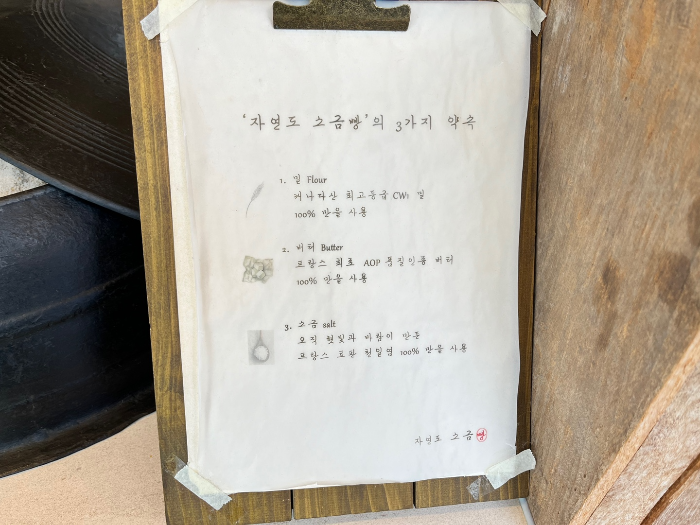 '자연도 소금빵'의 3가지 약속
1. 밀 Flour
캐나다산 최고등급 CW1 밀
100% 만을 사용
2. 버터 Butter
프랑스 최초 AOP 품질인증 버터
100% 만을 사용
3. 소금 salt
오직 햇빛과 바람이 만든
프랑스 토판 천일염 100% 만을 사용
자연도 소금빵